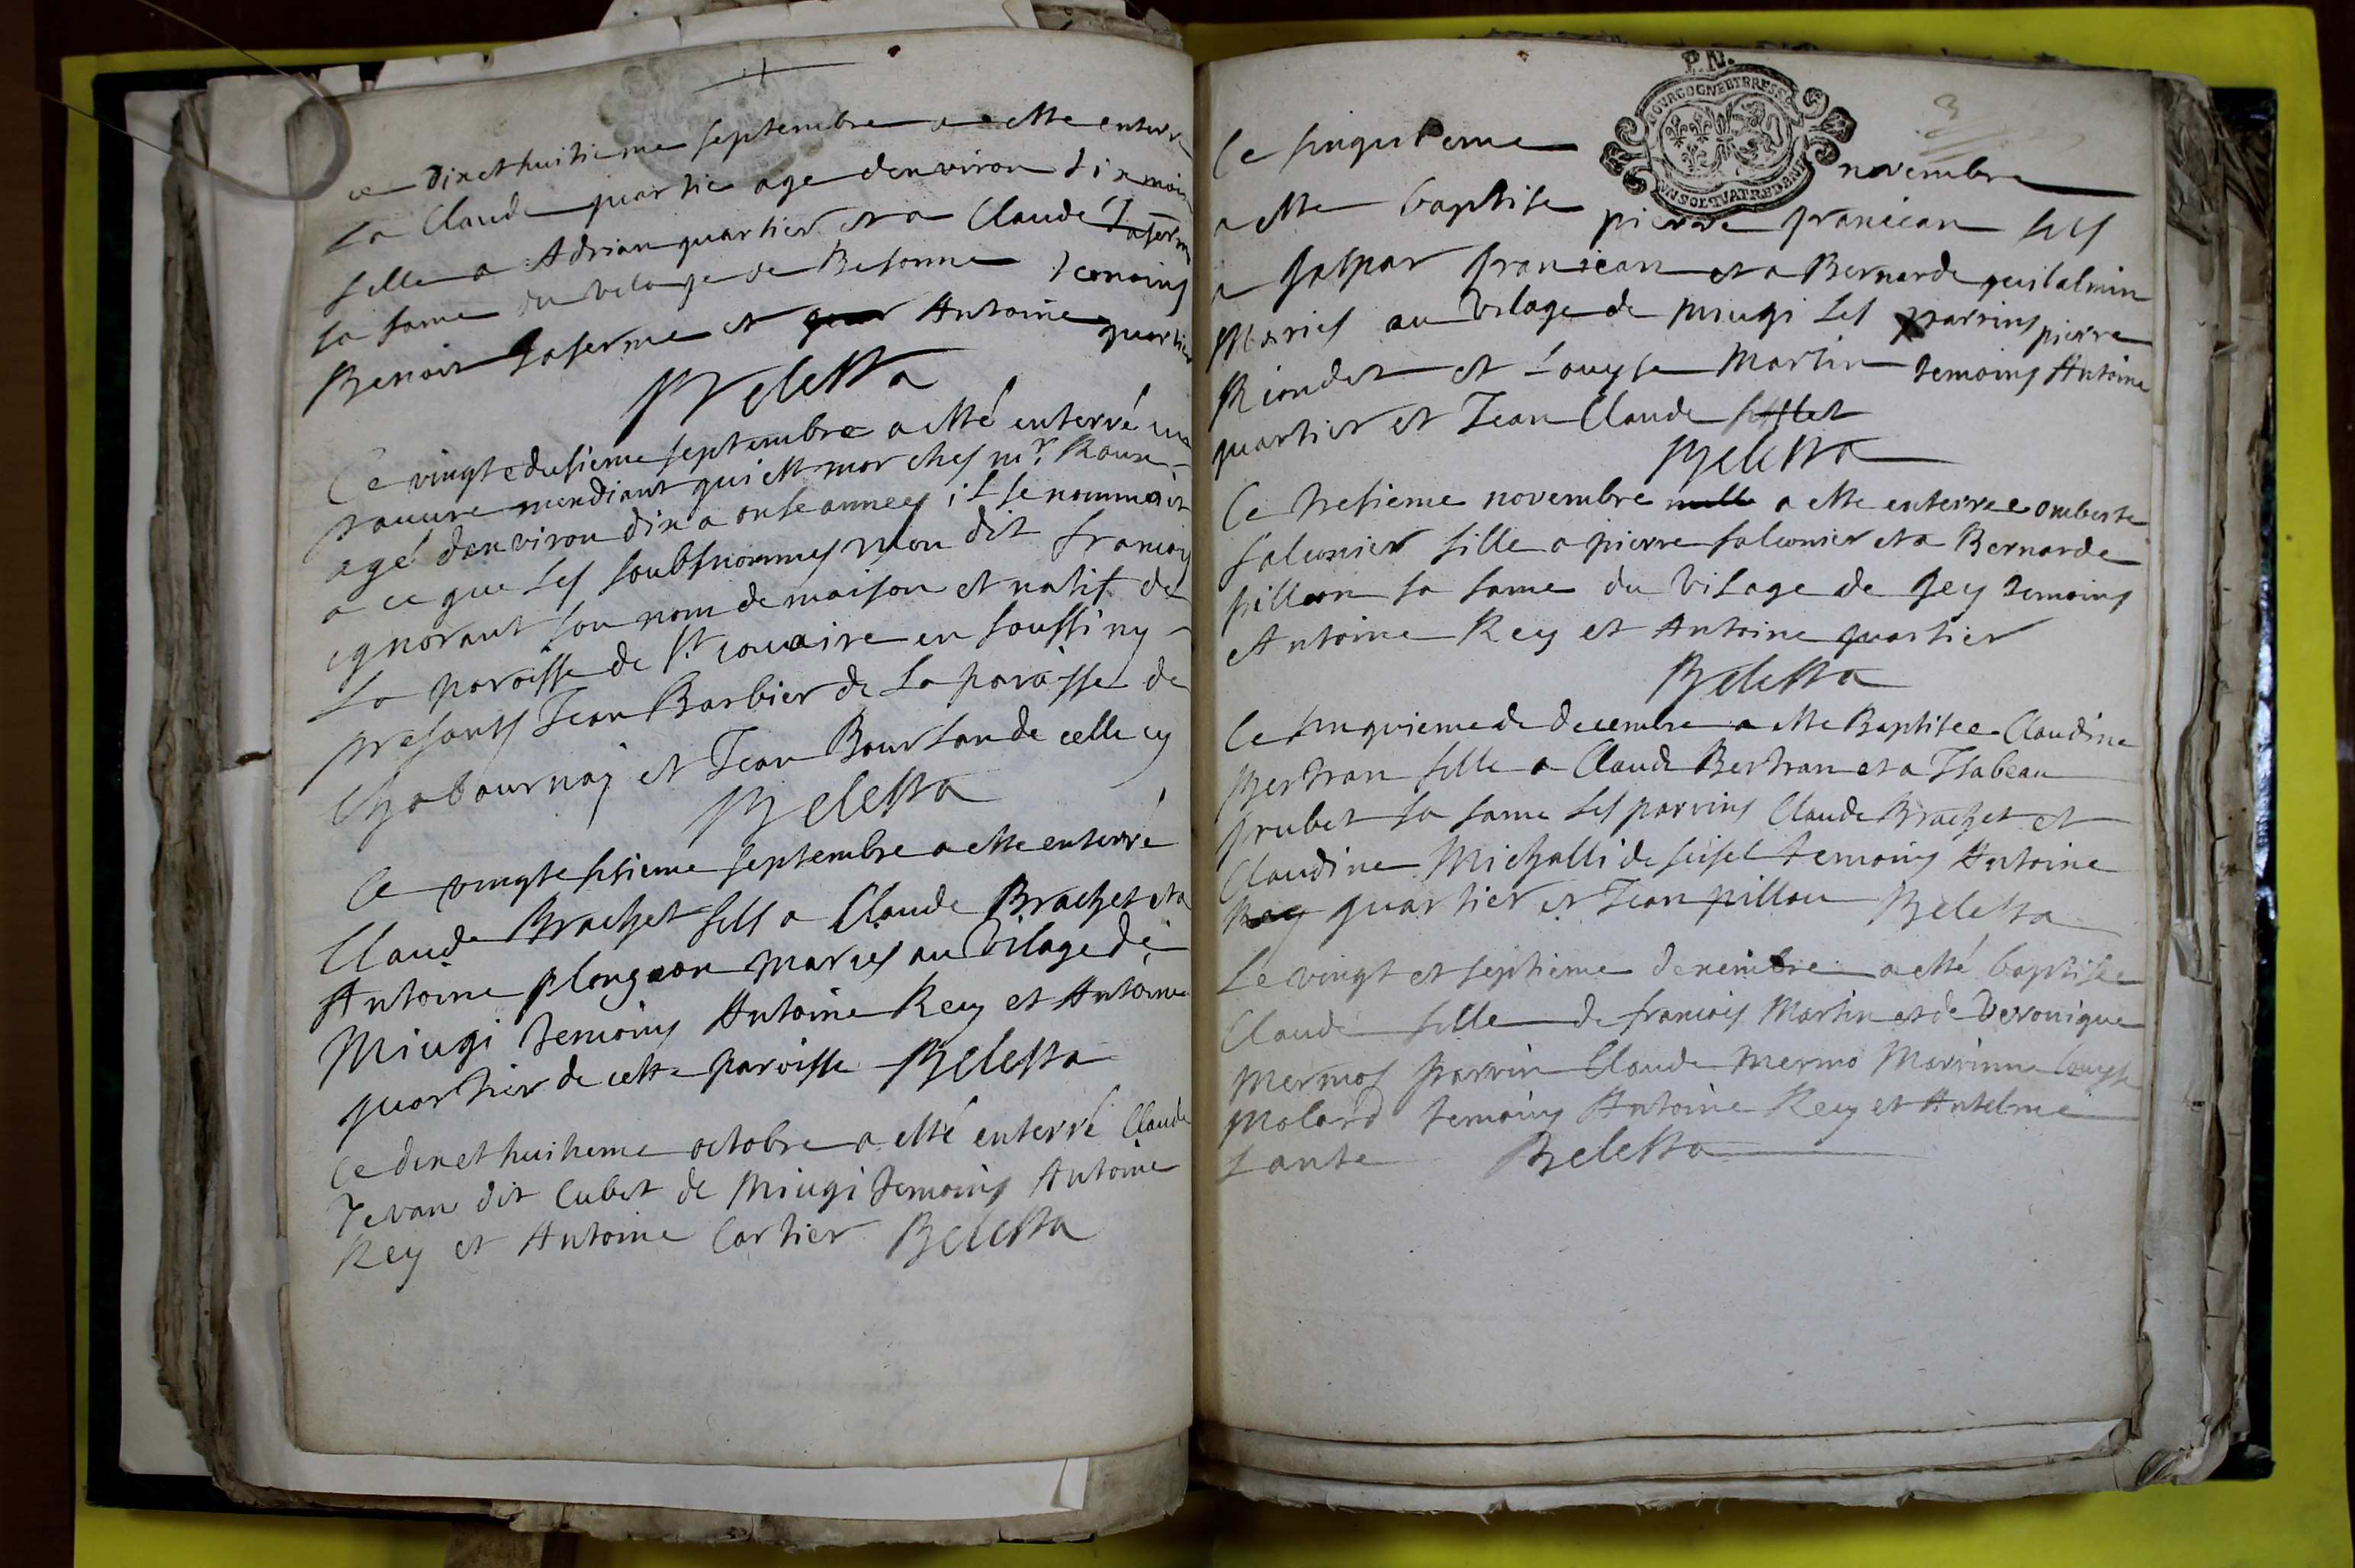 ce dix et huitieme septembre a este enterre
la Claude quartie age denviron dix mois
fille a Adrian quartier et a Claude
sa fame du vilage de Besonne temoins
Benoit laferme et Antoine quartier
Beletta
Ce vingt e dusieme septembre a esté enterré un
pauvre mendiant qui est mor ches mr. Roux
agé denviron dix a onse annees il se nommait
a ce que les soubsnommes mon dit francois
ignorant son nom de maison et natif de
la paroisse de st. en foussiny
presants Jean Barbier de la paroisse de
Chabournay et Jean Bourlan de celle cy
Beletta
Ce vingt e sisieme septembre a este enterré
Claude Brachet fils a Claude Brachet et a
Antoine plongeon maries au vilage de
Miugi temoins Antoine Rey et Antoine
quartier de cette paroisse Beletta
Ce dix et huitieme octobre a esté enterré Claude
Jevan dit Cubet de Miugi temoins Antoine
Rey et Antoine Cartier Beletta
P. N.
BOURGOGNE ET BRESSE
UN SOL QUATRE DEN
Ce sinquieme novembre
a este baptise pierre franiean fils
a gaspar franiean et a Bernarde guilalmin
Maries au vilage de miugi les parrins pierre
Riondet et Louyse Martin temoins Antoine
quartier et Jean Claude
Beletta
Ce tresieme novembre a este enterree omberte
falconier fille a pierre falconier et a Bernarde
pillion sa fame du vilage de Jey temoins
Antoine Rey et Antoine quartier
Beletta
Ce sinquieme de decembre a este Baptisee Claudine
Bertran fille a Claude Bertran et a Isabeau
grubet sa fame les parrins Claude Brachet et
Claudine Michalli de seisel temoins Antoine
quartier et Jean pillion Beletta
Le vingt et septieme decembre a esté baptisee
Claude fille de francois Martin et de Veronique
Mermos parrin Claude Mermo Marrinne Louyse
Molard temoins Antoine Rey et Antelme
Lante Beletta